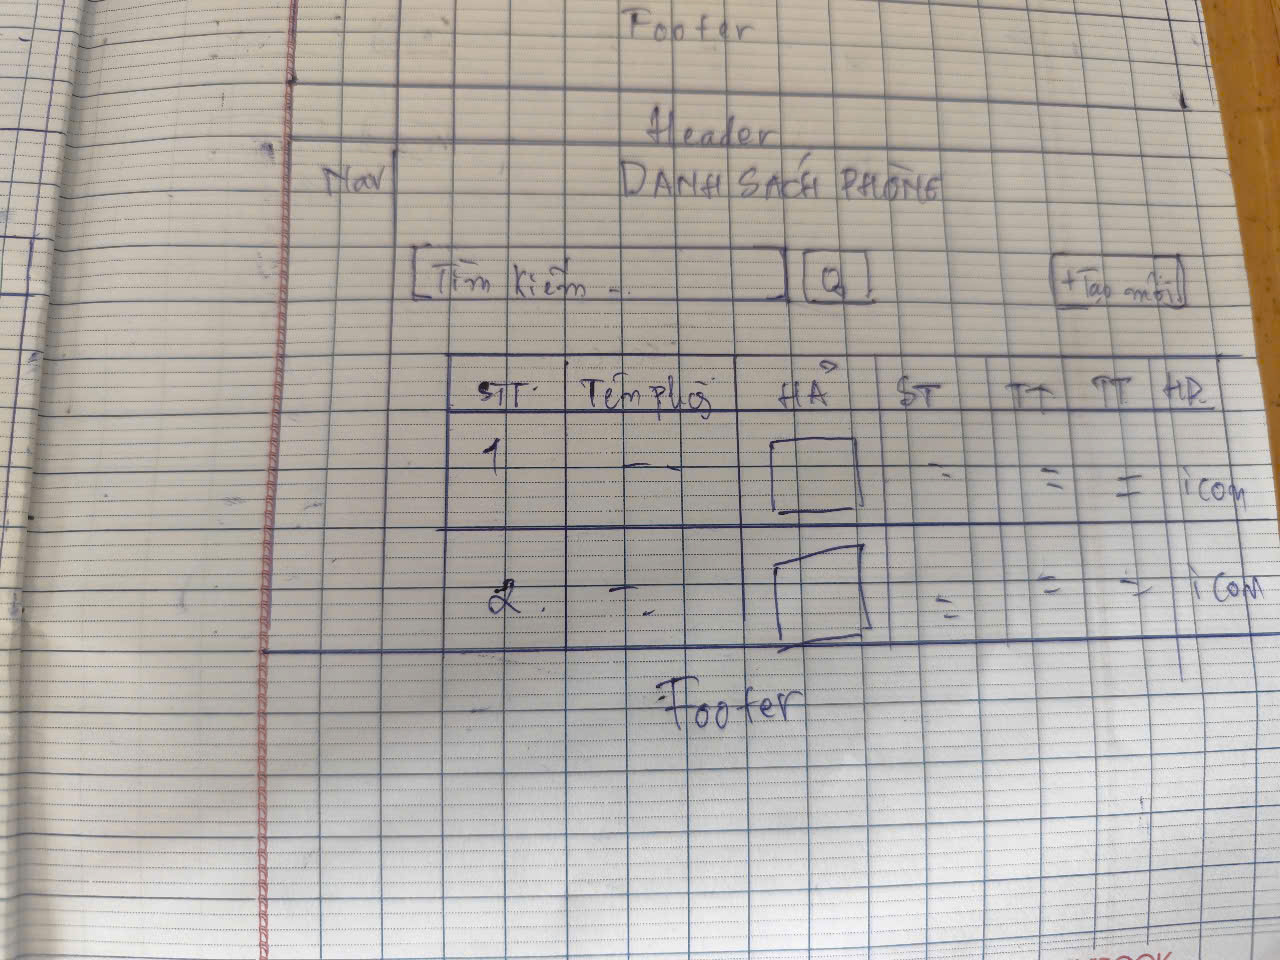 Footer
Header
Nav
DANH SÁCH PHÒNG
Tìm kiếm ...
Q
+Tạo mới
STT Tên phg HẢ ST TT TT HĐ
1 icon
2 icon
Footer